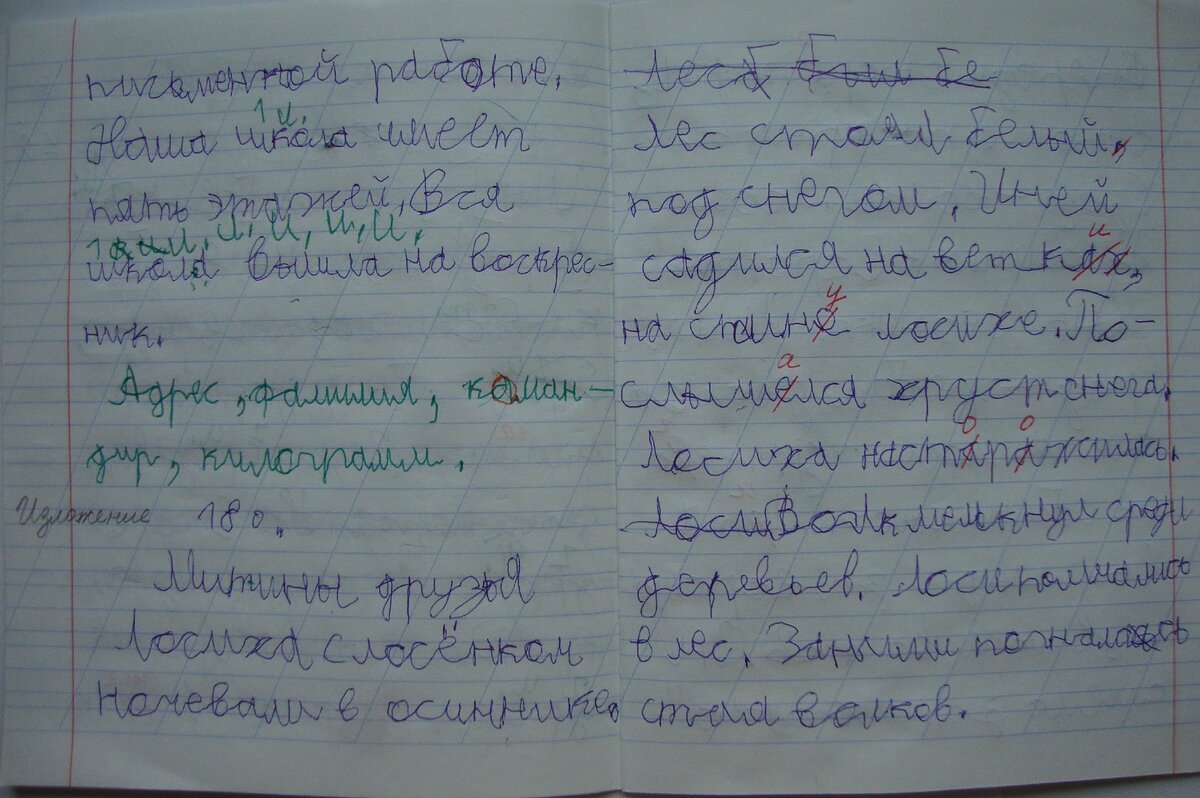 письменной работе.
1 и.
Наша школа имеет
пять этажей. Вся
1 , и, и, и, и.
школа вышла на воскрес-
ник.
Адрес, фамилия, коман-
дир, килограмм.
Изложение 18 о.
Митины друзья
Лосиха с лосёнком
ночевали в осиннике.
Леса был бе
Лес стоял белый,
под снегом. Иней
и
садился на ветках,
у
на спине лосихе. По-
а
слышелся хруст снега.
о о
Лосиха настаражилась.
Лоси Волк мелькнул среди
деревьев. Лоси помчались
в лес. Заними погналась
стая волков.